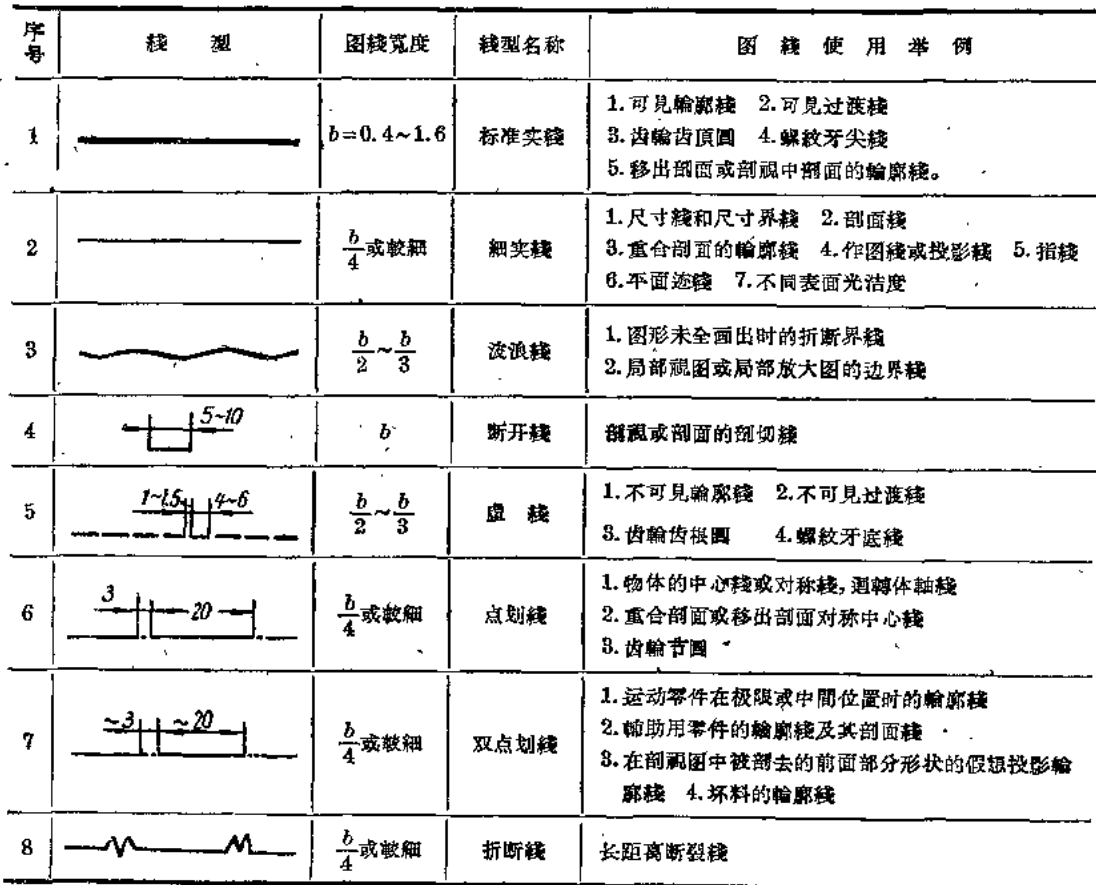 序号 綫 型 图綫宽度 綫型名称 图 綫 使 用 举 例
1 b=0.4~1.6 标准实綫 1.可見輪廓綫 2.可見过渡綫
3.齿輪齿頂圓 4.螺紋牙尖綫
5.移出剖面或剖視中剖面的輪廓綫。
2 b/4或較細 細实綫 1.尺寸綫和尺寸界綫 2.剖面綫
3.重合剖面的輪廓綫 4.作图綫或投影綫 5.指綫
6.平面迹綫 7.不同表面光洁度
3 b/2~b/3 波浪綫 1.图形未全画出时的折断界綫
2.局部視图或局部放大图的边界綫
4 5~10 b 断开綫 剖視或剖面的剖切綫
5 1~1.5 4~6 b/2~b/3 虛 綫 1.不可見輪廓綫 2.不可見过渡綫
3.齿輪齿根圓 4.螺紋牙底綫
6 3 20 b/4或較細 点划綫 1.物体的中心綫或对称綫,迴轉体軸綫
2.重合剖面或移出剖面对称中心綫
3.齿輪节圓
7 ~3 ~20 b/4或較細 双点划綫 1.运动零件在极限或中間位置时的輪廓綫
2.輔助用零件的輪廓綫及其剖面綫
3.在剖視图中被剖去的前面部分形状的假想投影輪
廓綫 4.坏料的輪廓綫
8 b/4或較細 折断綫 长距离断裂綫